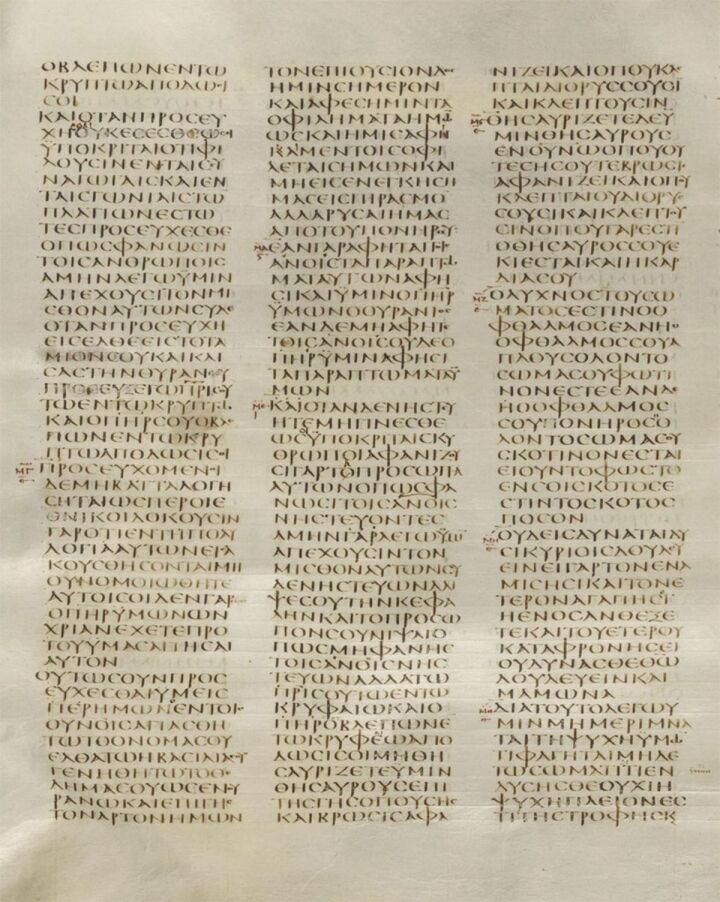 ΟΒΛΕΠΩΝΕΝΤΩ
ΚΡΥΠΤΩΑΠΟΔΩϹΙ
ϹΟΙ
ΚΑΙΟΤΑΝΠΡΟϹΕΥ
ΧΗΟΥΚΕϹΕϹΘΕΩϹΟΙ
ΥΠΟΚΡΙΤΑΙΟΤΙΦΙ
ΛΟΥϹΙΝΕΝΤΑΙϹϹΥ
ΝΑΓΩΓΑΙϹΚΑΙΕΝ
ΤΑΙϹΓΩΝΙΑΙϹΤΩ
ΠΛΑΤΙΩΝΕϹΤΩ
ΤΕϹΠΡΟϹΕΥΧΕϹΘΕ
ΟΠΩϹΦΑΝΩϹΙΝ
ΤΟΙϹΑΝΘΡΩΠΟΙϹ
ΑΜΗΝΛΕΓΩΫΜΙΝ
ΑΠΕΧΟΥϹΙΤΟΝΜΙ
ϹΘΟΝΑΥΤΩΝϹΥΔΕ
ΟΤΑΝΠΡΟϹΕΥΧΗ
ΕΙϹΕΛΘΕΕΙϹΤΟΤΑ
ΜΙΟΝϹΟΥΚΑΙΚΛΙ
ϹΑϹΤΗΝΘΥΡΑΝϹΟΥ
ΠΡΟϹΕΥΞΕΤΩΠΡΙϹΟΥ
ΤΩΕΝΤΩΚΡΥΠΤΩ
ΚΑΙΟΠΗΡϹΟΥΟΒΛΕ
ΠΩΝΕΝΤΩΚΡΥ
ΠΤΩΑΠΟΔΩϹΙϹΟΙ
ΜΓ ΠΡΟϹΕΥΧΟΜΕΝΟΙ
ΔΕΜΗΒΑΤΤΑΛΟΓΗ
ϹΗΤΑΙΩϹΠΕΡΟΙΕ
ΘΝΙΚΟΙΔΟΚΟΥϹΙΝ
ΓΑΡΟΤΙΕΝΤΗΠΟΛΥ
ΛΟΓΙΑΑΥΤΩΝΕΙϹΑ
ΚΟΥϹΘΗϹΟΝΤΑΙΜΗ
ΟΥΝΟΜΟΙΩΘΗΤΕ
ΑΥΤΟΙϹΟΙΔΕΝΓΑΡ
ΟΠΗΡΫΜΩΝΩΝ
ΧΡΙΑΝΕΧΕΤΕΠΡΟ
ΤΟΥΥΜΑϹΑΙΤΗϹΑΙ
ΑΥΤΟΝ
ΟΥΤΩϹΟΥΝΠΡΟϹ
ΕΥΧΕϹΘΑΙΫΜΕΙϹ
ΠΕΡΗΜΩΝΟΕΝΤΟΙϹ
ΟΥΝΟΙϹΑΓΙΑϹΘΗ
ΤΩΤΟΟΝΟΜΑϹΟΥ
ΕΛΘΑΤΩΗΒΑϹΙΛΙΑϹΟΥ
ΓΕΝΗΘΗΤΩΤΟΘΕ
ΛΗΜΑϹΟΥΩϹΕΝΟΥ
ΡΑΝΩΚΑΙΕΠΙΓΗϹ
ΤΟΝΑΡΤΟΝΗΜΩΝ
ΤΟΝΕΠΙΟΥϹΙΟΝΔΟϹ
ΗΜΙΝϹΗΜΕΡΟΝ
ΚΑΙΑΦΕϹΗΜΙΝΤΑ
ΟΦΙΛΗΜΑΤΑΗΜΩ
ΩϹΚΑΙΗΜΙϹΑΦΗ
ΚΑΜΕΝΤΟΙϹΟΦΙ
ΛΕΤΑΙϹΗΜΩΝΚΑΙ
ΜΗΕΙϹΕΝΕΓΚΗϹΗ
ΜΑϹΕΙϹΠΙΡΑϹΜΟ
ΑΛΛΑΡΥϹΑΙΗΜΑϹ
ΑΠΟΤΟΥΠΟΝΗΡΟΥ
ΜΔ ΕΑΝΓΑΡΑΦΗΤΑΙΤΟΙϹ
ΑΝΟΙϹΤΑΠΑΡΑΠΤΩ
ΜΑΤΑΑΥΤΩΝΑΦΗ
ϹΙΚΑΙΫΜΙΝΟΠΗΡ
ΫΜΩΝΟΟΥΡΑΝΙΟϹ
ΕΑΝΔΕΜΗΑΦΗΤΕ
ΤΟΙϹΑΝΟΙϹΟΥΔΕΟ
ΠΗΡΫΜΙΝΑΦΗϹΙ
ΤΑΠΑΡΑΠΤΩΜΑΤΑΫ
ΜΩΝ
ΜΕ ΚΑΙΟΤΑΝΔΕΝΗϹΤΕΥ
ΗΤΕΜΗΓΙΝΕϹΘΕ
ΩϹΥΠΟΚΡΙΤΑΙϹΚΥ
ΘΡΩΠΟΙΑΦΑΝΙΖΟΥ
ϹΙΓΑΡΤΟΠΡΟϹΩΠΟ
ΑΥΤΩΝΟΠΩϹΦΑ
ΝΩϹΙΤΟΙϹΑΝΟΙϹ
ΝΗϹΤΕΥΟΝΤΕϹ
ΑΜΗΝΓΑΡΛΕΓΩΫΜΙ
ΑΠΕΧΟΥϹΙΝΤΟΝ
ΜΙϹΘΟΝΑΥΤΩΝϹΥ
ΔΕΝΗϹΤΕΥΩΝΑΛΙ
ΨΕϹΟΥΤΗΝΚΕΦΑ
ΛΗΝΚΑΙΤΟΠΡΟϹΩ
ΠΟΝϹΟΥΝΙΨΑΙΟ
ΠΩϹΜΗΦΑΝΗϹ
ΤΟΙϹΑΝΟΙϹΝΗϹ
ΤΕΥΩΝΑΛΛΑΤΩ
ΠΡΙϹΟΥΤΩΕΝΤΩ
ΚΡΥΦΑΙΩΚΑΙΟ
ΠΗΡΟΒΛΕΠΩΝΕ
ΤΩΚΡΥΦΕΩΑΠΟ
ΔΩϹΙϹΟΙΜΗΘΗ
ϹΑΥΡΙΖΕΤΕΥΜΙΝ
ΘΗϹΑΥΡΟΥϹΕΠΙ
ΤΗϹΓΗϹΟΠΟΥϹΗϹ
ΚΑΙΒΡΩϹΙϹΑΦΑ
ΝΙΖΕΙΚΑΙΟΠΟΥΚΛΕ
ΠΤΑΙΔΙΟΡΥϹϹΟΥϹΙ
ΚΑΙΚΛΕΠΤΟΥϹΙΝ
ΜϚ ΘΗϹΑΥΡΙΖΕΤΕΔΕΥ
ΜΙΝΘΗϹΑΥΡΟΥϹ
ΕΝΟΥΝΩΟΠΟΥΟΥ
ΤΕϹΗϹΟΥΤΕΒΡΩϹΙϹ
ΑΦΑΝΙΖΕΙΚΑΙΟΠΟΥ
ΚΛΕΠΤΑΙΟΥΔΙΟΡΥϹ
ϹΟΥϹΙΚΑΙΚΛΕΠΤΟΥ
ϹΙΝΟΠΟΥΓΑΡΕϹΤΙ
ΟΘΗϹΑΥΡΟϹϹΟΥΕ
ΚΙΕϹΤΑΙΚΑΙΗΚΑΡ
ΔΙΑϹΟΥ
ΜΖ ΟΛΥΧΝΟϹΤΟΥϹΩ
ΜΑΤΟϹΕϹΤΙΝΟΟ
ΦΘΑΛΜΟϹΕΑΝΗ
ΟΦΘΑΛΜΟϹϹΟΥΑ
ΠΛΟΥϹΟΛΟΝΤΟ
ϹΩΜΑϹΟΥΦΩΤΙ
ΝΟΝΕϹΤΕΕΑΝΔΕ
ΗΟΟΦΘΑΛΜΟϹ
ϹΟΥΠΟΝΗΡΟϹΟ
ΛΟΝΤΟϹΩΜΑϹΟΥ
ϹΚΟΤΙΝΟΝΕϹΤΑΙ
ΕΙΟΥΝΤΟΦΩϹΤΟ
ΕΝϹΟΙϹΚΟΤΟϹΕ
ϹΤΙΝΤΟϹΚΟΤΟϹ
ΠΟϹΟΝ
ΜΗ ΟΥΔΕΙϹΔΥΝΑΤΑΙΔΥ
ϹΙΚΥΡΙΟΙϹΔΟΥΛΕΥ
ΕΙΝΕΙΓΑΡΤΟΝΕΝΑ
ΜΙϹΗϹΙΚΑΙΤΟΝΕ
ΤΕΡΟΝΑΓΑΠΗϹΙΗ
ΕΝΟϹΑΝΘΕΞΕ
ΤΕΚΑΙΤΟΥΕΤΕΡΟΥ
ΚΑΤΑΦΡΟΝΗϹΕΙ
ΟΥΔΥΝΑϹΘΕΘΩ
ΔΟΥΛΕΥΕΙΝΚΑΙ
ΜΑΜΩΝΑ
ΜΘ ΔΙΑΤΟΥΤΟΛΕΓΩΥ
ΜΙΝΜΗΜΕΡΙΜΝΑ
ΤΑΙΤΗΨΥΧΗΥΜΩ
ΤΙΦΑΓΗΤΑΙΜΗΔΕ
ΤΩϹΩΜΑΤΙΤΙΕΝ
ΔΥϹΗϹΘΕΟΥΧΙΗ
ΨΥΧΗΠΛΕΙΟΝΕϹ
ΤΙΤΗϹΤΡΟΦΗϹΚ